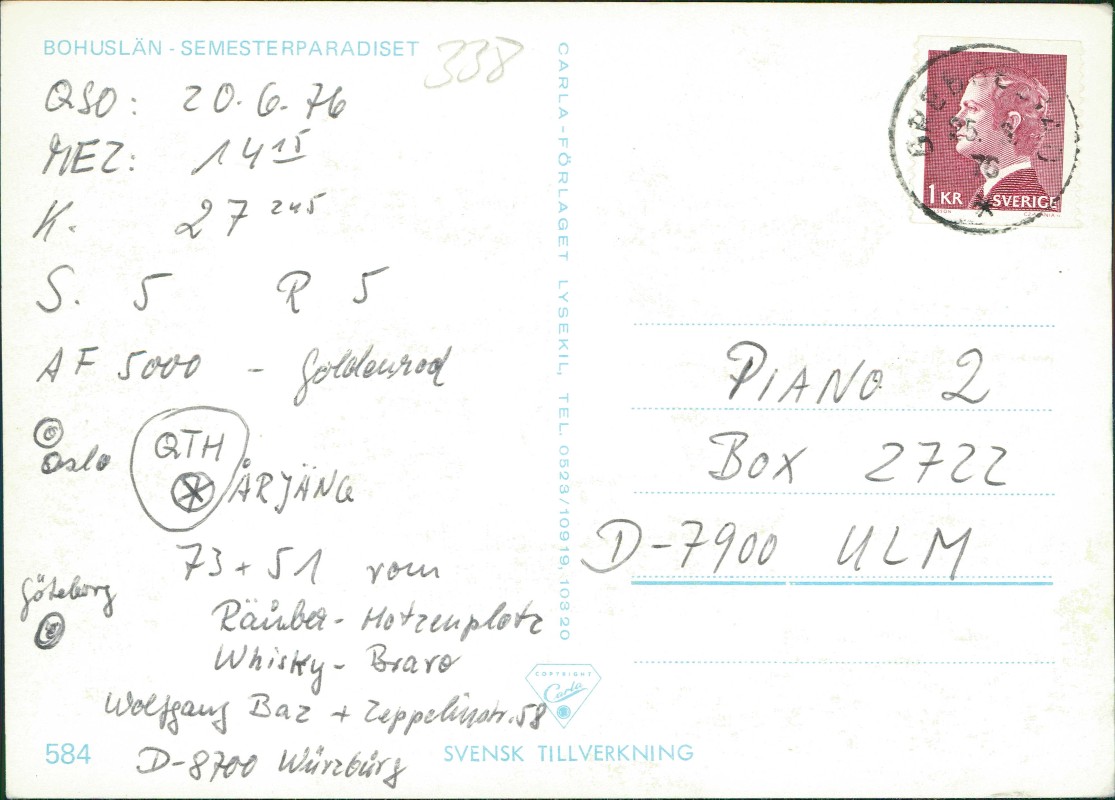 BOHUSLÄN - SEMESTERPARADISET
338
QSO: 20.6.76
MEZ: 14 15
K. 27 245
S. 5 R 5
AF 5000 - Goldenrod
Oslo
QTH
ÅRJÄNG
73 + 51 vom
Göteborg
Räuber-Hotzenplotz
Whisky-Bravo
Wolfgang Baz + Zeppelinstr. 58
D-8700 Würzburg
584
SVENSK TILLVERKNING
CARLA-FÖRLAGET LYSEKIL, TEL. 0523/10919, 10320
COPYRIGHT
Carla
76
1 KR SVERIGE
PIANO 2
BOX 2722
D-7900 ULM